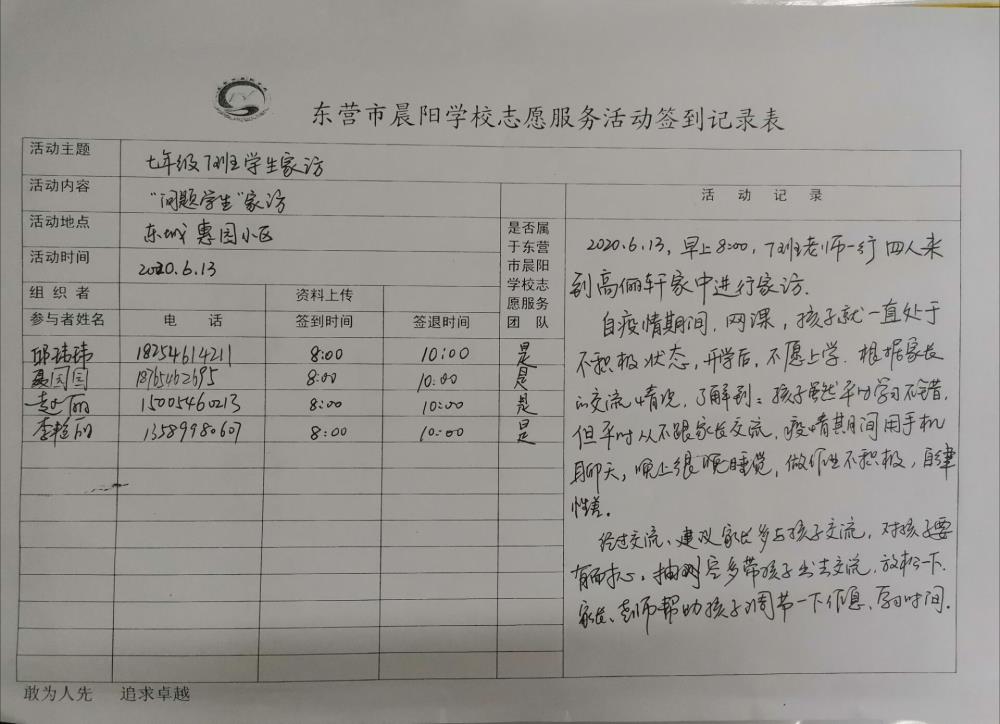 东营市晨阳学校志愿服务活动签到记录表
活动主题 七年级7班学生家访
活动内容 “问题学生”家访
活动地点 东城惠园小区
活动时间 2020.6.13
组织者 资料上传
参与者姓名 电话 签到时间 签退时间
是否属
于东营
市晨阳
学校志
愿服务
团队
邱玮玮 18254614211 8:00 10:00 是
聂园园 18765462695 8:00 10:00 是
丽 15005460213 8:00 10:00 是
李艳丽 13589980607 8:00 10:00 是
活动记录
2020.6.13,早上8:00,7班老师一行四人来
到高俪轩家中进行家访.
自疫情期间,网课,孩子就一直处于
不积极状态,开学后,不愿上学.根据家长
的交流情况,了解到:孩子虽然平时学习不错,
但平时从不跟家长交流,疫情期间用手机
聊天,晚上很晚睡觉,做作业不积极,自律
性差.
经过交流、建议家长多与孩子交流,对孩子要
有耐心,抽时空多带孩子出去交流,放松一下.
家长、老师帮助孩子调节一下作息、学习时间.
敢为人先 追求卓越